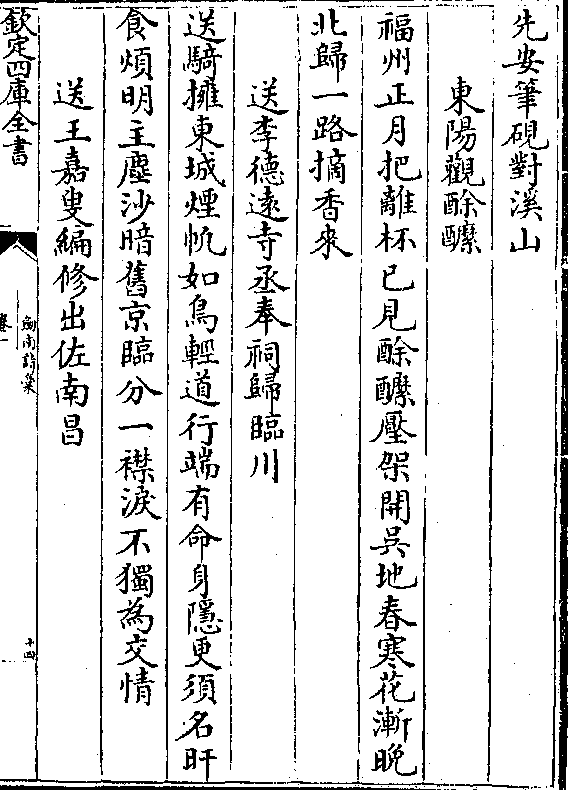 先安筆硯對溪山
東陽觀酴醾
福州正月把離杯已見酴醾壓架開吳地春寒花漸晚
北歸一路摘香來
送李德遠寺丞奉祠歸臨川
送騎擁東城煙帆如鳥輕道行端有命身隱更須名旰
食煩明主塵沙暗舊京臨分一襟淚不獨為交情
送王嘉叟編修出佐南昌
欽定四庫全書
劒南詩藁
卷一
十四